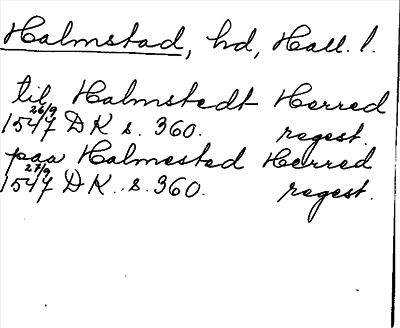 Halmstad, hd, Hall. l.
til Halmstedt Herred
1547 26/9 DK s. 360. regest.
paa Halmested Herred
1547 27/9 DK. s. 360. regest.